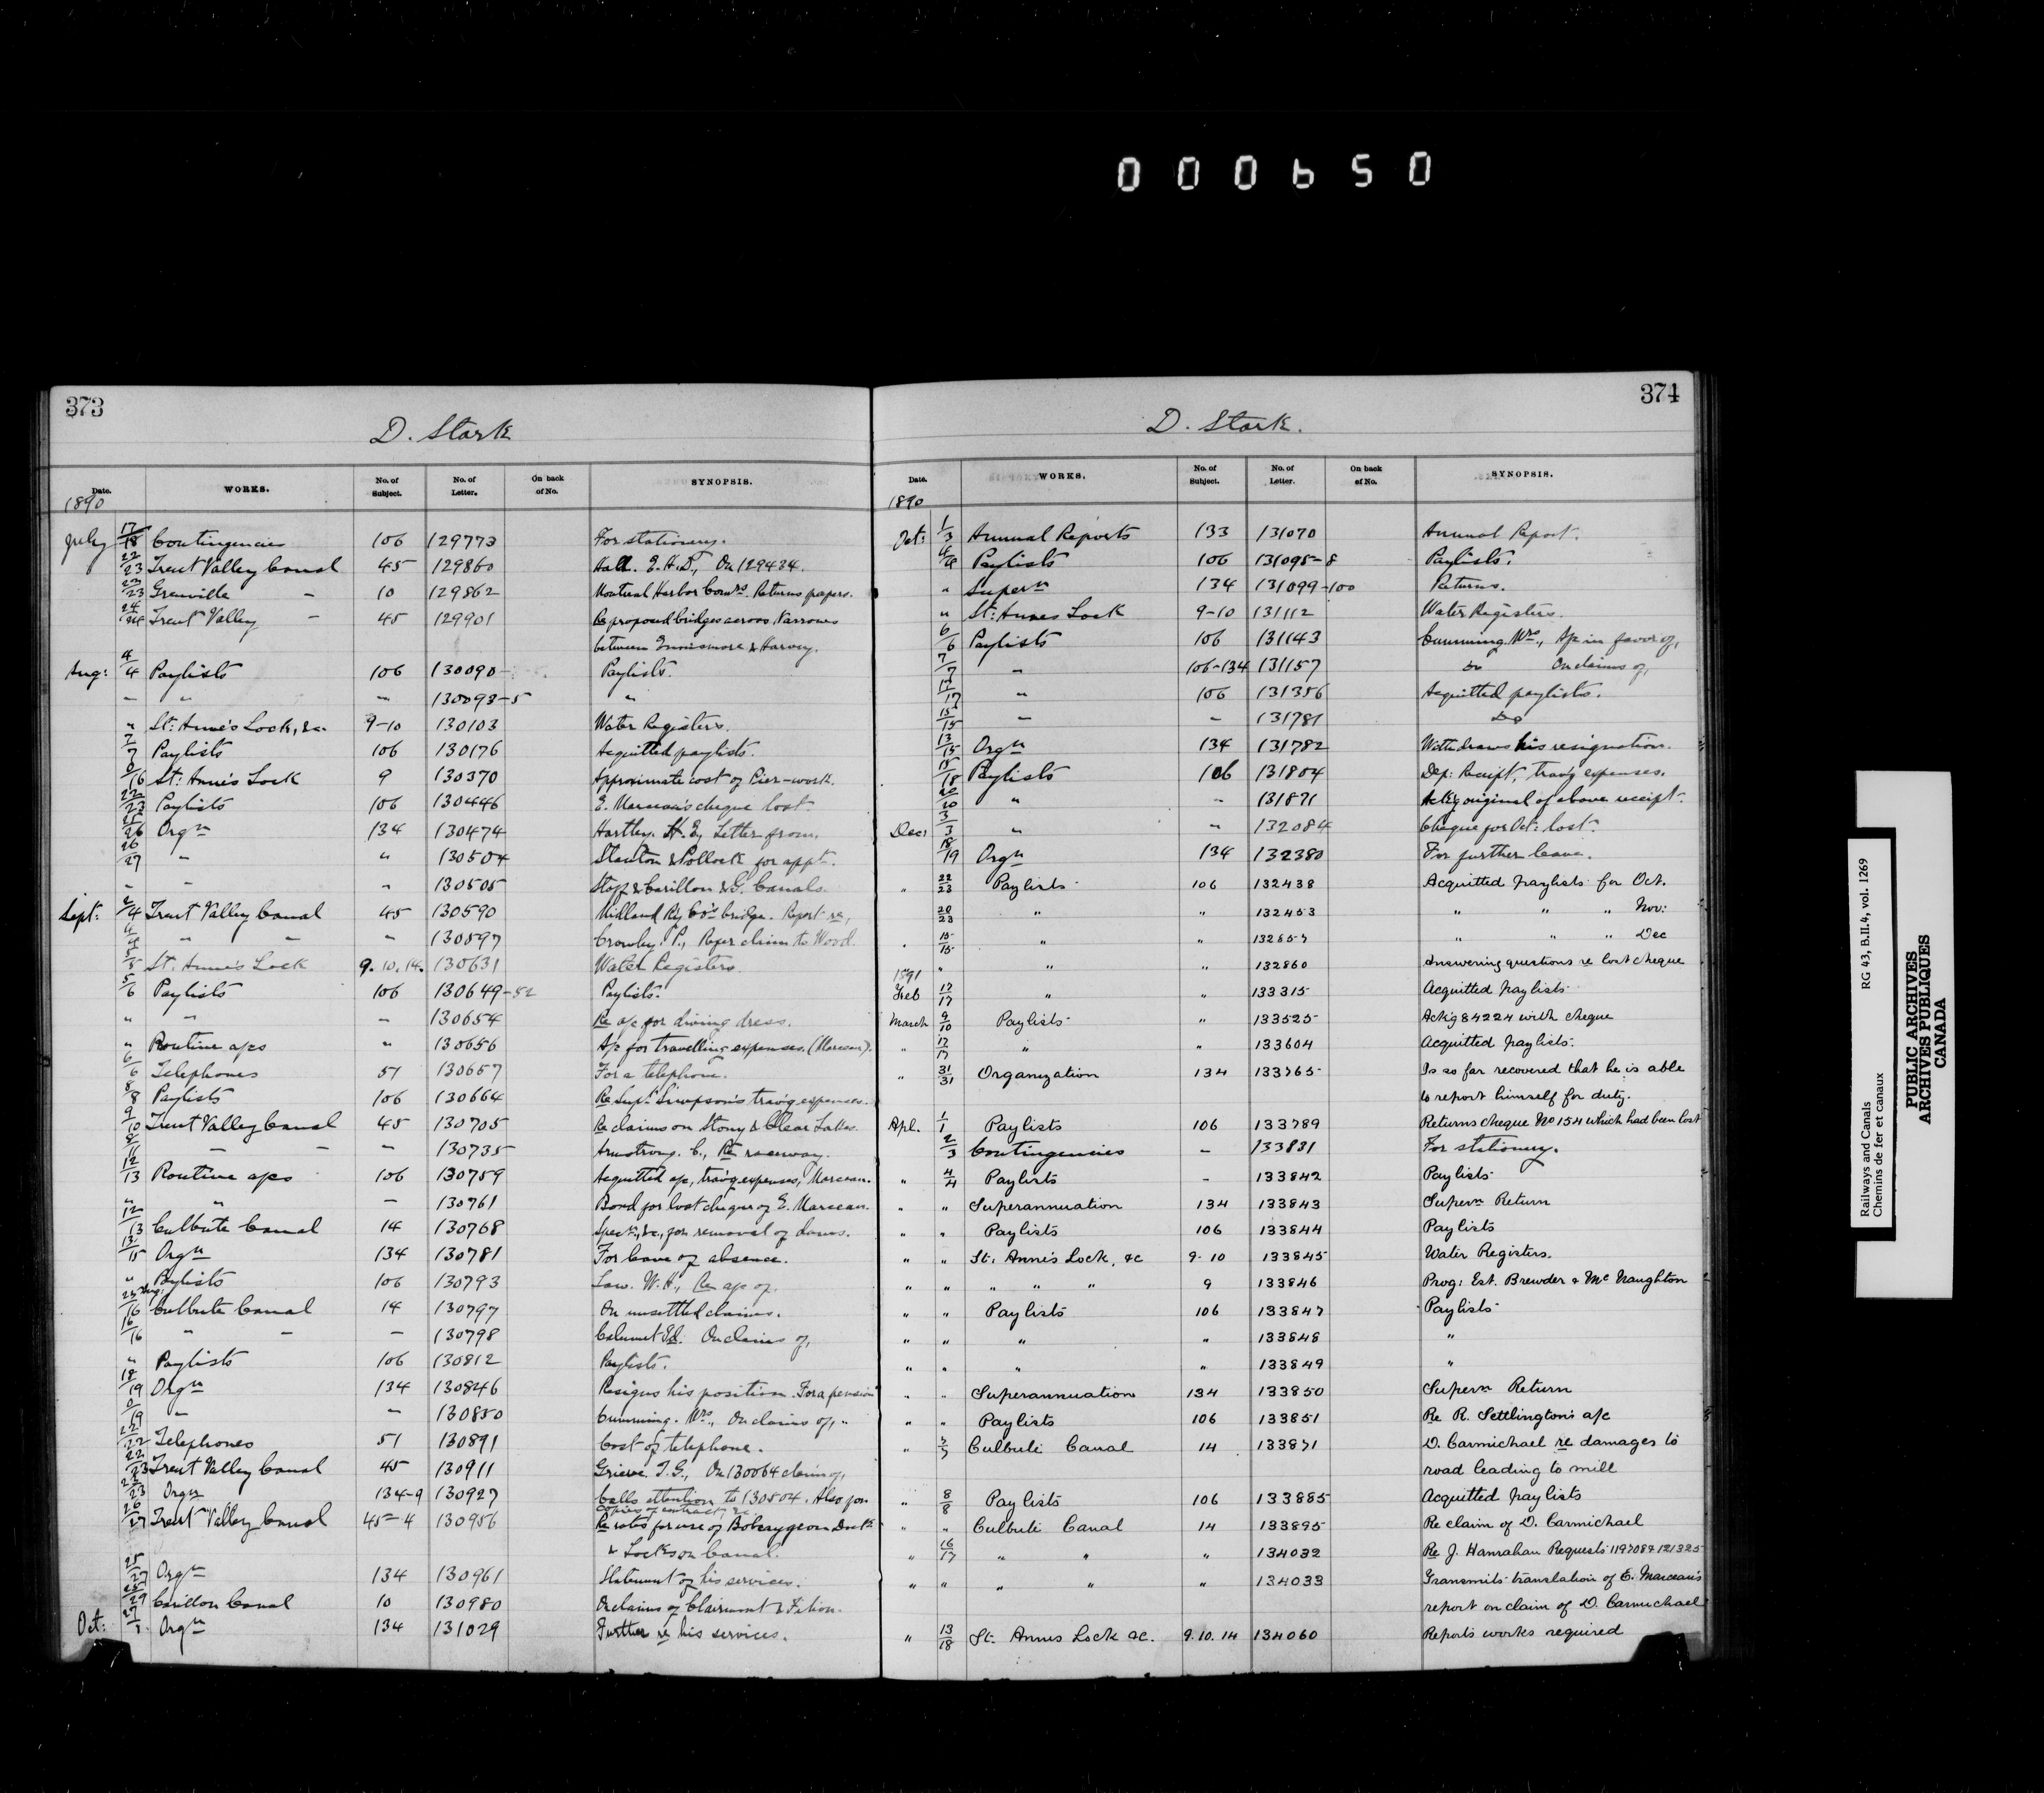 000650
373
D. Stark
Date. WORKS. No. of Subject. No. of Letter. On back of No. SYNOPSIS.
1890
July 17/18 Contingencies 106 129773 For stationery.
22/23 Trent Valley Canal 45 129860 Hall. E. H. D., On 129434.
23/23 Grenville – 10 129862 Montreal Harbor Comrs. Returns papers.
24/24 Trent Valley – 45 129901 Re proposed bridges across Narrows
between Ennismore & Harvey.
Aug: 4/4 Paylists 106 130090 Paylists.
– – – 130093-5 "
" St: Anne's Lock, &c. 9-10 130103 Water Registers.
7/7 Paylists 106 130176 Acquitted paylists.
/16 St: Anne's Lock 9 130370 Approximate cost of Pier-work.
22/23 Paylists 106 130446 E. Marceau's cheque lost
25/26 Orgn 134 130474 Hartley. H. E, Letter from,
26/27 " " 130504 Stanton & Pollock for appt.
" – " 130505 Staff & Carillon & G. Canals.
Sept: 2/4 Trent Valley Canal 45 130590 Midland Ry Co's bridge. Report re,
4/4 " – – 130597 Crowley. P., Refer claim to Wood.
5/5 St. Anne's Lock 9.10.14. 130631 Water Registers.
5/6 Paylists 106 130649-52 Paylists.
" " – 130654 Re a/c for diving dress.
" Routine a/cs " 130656 A/c for travelling expenses. (Marceau).
6/6 Telephones 51 130657 For a telephone.
8/8 Paylists 106 130664 Re Supt. Simpson's trav'g expenses.
9/10 Trent Valley Canal 45 130705 Re claims on Stony & Clear Lakes.
8/11 – – – 130735 Armstrong. C., Re raceway.
12/13 Routine a/cs 106 130759 Acquitted a/c, trav'g expenses, Marceau.
" " – 130761 Bond for lost cheque of E. Marceau.
12/13 Culbute Canal 14 130768 Specn., &c., for removal of dams.
13/15 Orgn 134 130781 For leave of absence.
" Paylists 106 130793 Law. W. H., Re a/c of.
25 Aug:/16 Culbute Canal 14 130797 On unsettled claims.
16/16 " – – 130798 Calumet Id. On claims of,
" Paylists 106 130812 Paylists.
18/19 Orgn 134 130846 Resigns his position. For a pension
/19 – – 130850 Cumming. Wm., On claims of, "
22/22 Telephones 51 130891 Cost of telephone.
22/23 Trent Valley Canal 45 130911 Grieve. T. G., On 130064 claim of,
22/23 Orgn 134-9 130927 Calls attention to 130504. Also for
copies of contract, &c.
26/27 Trent Valley Canal 45-4 130956 Re rates for use of Bobcaygeon Dock
& Locks on Canal.
25/27 Orgn 134 130961 Statement of his services.
/29 Carillon Canal 10 130980 On claims of Clairmont & Filion.
Oct: 27/1 Orgn 134 131029 Further re his services.
374
D. Stark.
Date. WORKS. No. of Subject. No. of Letter. On back of No. SYNOPSIS.
1890
Oct: 1/3 Annual Reports 133 131070 Annual Report.
4/4 Paylists 106 131095-8 Paylists.
" Supern 134 131099-100 Returns.
" St: Annes Lock 9-10 131112 Water Registers.
6/6 Paylists 106 131143 Cumming. Wm., A/c in favor of,
7/7 " 106-134 131157 Do On claims of,
17/17 " 106 131356 Acquitted paylists.
15/15 – – 131781 Do
13/15 Orgn 134 131782 Withdraws his resignation.
15/18 Paylists 106 131804 Dep: Receipt, trav'g expenses.
20/20 " – 131871 Ackg original of above receipt.
Dec: 3/3 " – 132084 Cheque for Oct: lost.
18/19 Orgn 134 132380 For further leave.
" 22/23 Paylists 106 132438 Acquitted paylists for Oct.
20/23 " " 132453 " " " Nov:
" 15/15 " " 132857 " " " Dec
1891
" " " 132860 Answering questions re lost cheque
Feb 17/17 " " 133315 Acquitted paylists
March 9/10 Paylists " 133525 Ackg 84224 with cheque
" 17/17 " " 133604 Acquitted paylists.
" 31/31 Organization 134 133765 Is so far recovered that he is able
to report himself for duty.
Apl. 1/1 Paylists 106 133789 Returns cheque No 154 which had been lost
2/3 Contingencies – 133831 For stationery.
" 4/4 Paylists – 133842 Paylists
" " Superannuation 134 133843 Supern Return
" " Paylists 106 133844 Paylists
" " St. Anne's Lock, &c 9-10 133845 Water Registers.
" " " " " 9 133846 Prog: Est. Brewder & McNaughton
" " Paylists 106 133847 Paylists
" " " " 133848 "
" " " " 133849 "
" " Superannuation 134 133850 Supern Return
" " Paylists 106 133851 Re R. Settlington's a/c
" 7/7 Culbute Canal 14 133871 D. Carmichael re damages to
road leading to mill
" 8/8 Paylists 106 133885 Acquitted paylists
" " Culbute Canal 14 133895 Re claim of D. Carmichael
" 16/17 " " " 134032 Re J. Hanrahan Requests 119708 & 121325
" " " " " 134033 Transmits translation of E. Marceau's
report on claim of D. Carmichael
" 13/18 St. Annes Lock &c. 9.10.14 134060 Reports works required
Railways and Canals
Chemins de fer et canaux
RG 43, B.II.4, vol. 1269
PUBLIC ARCHIVES
ARCHIVES PUBLIQUES
CANADA